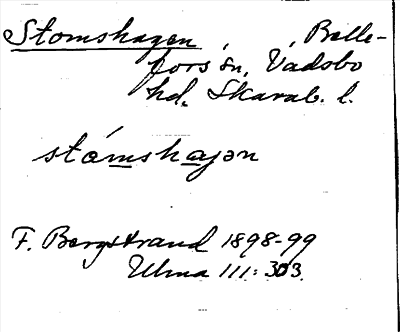 Stomshagen, Belle-
fors sn, Vadsbo
hd, Skarab. l.
stómshaȷən
F. Bergstrand 1898-99
Ulma 111: 303.